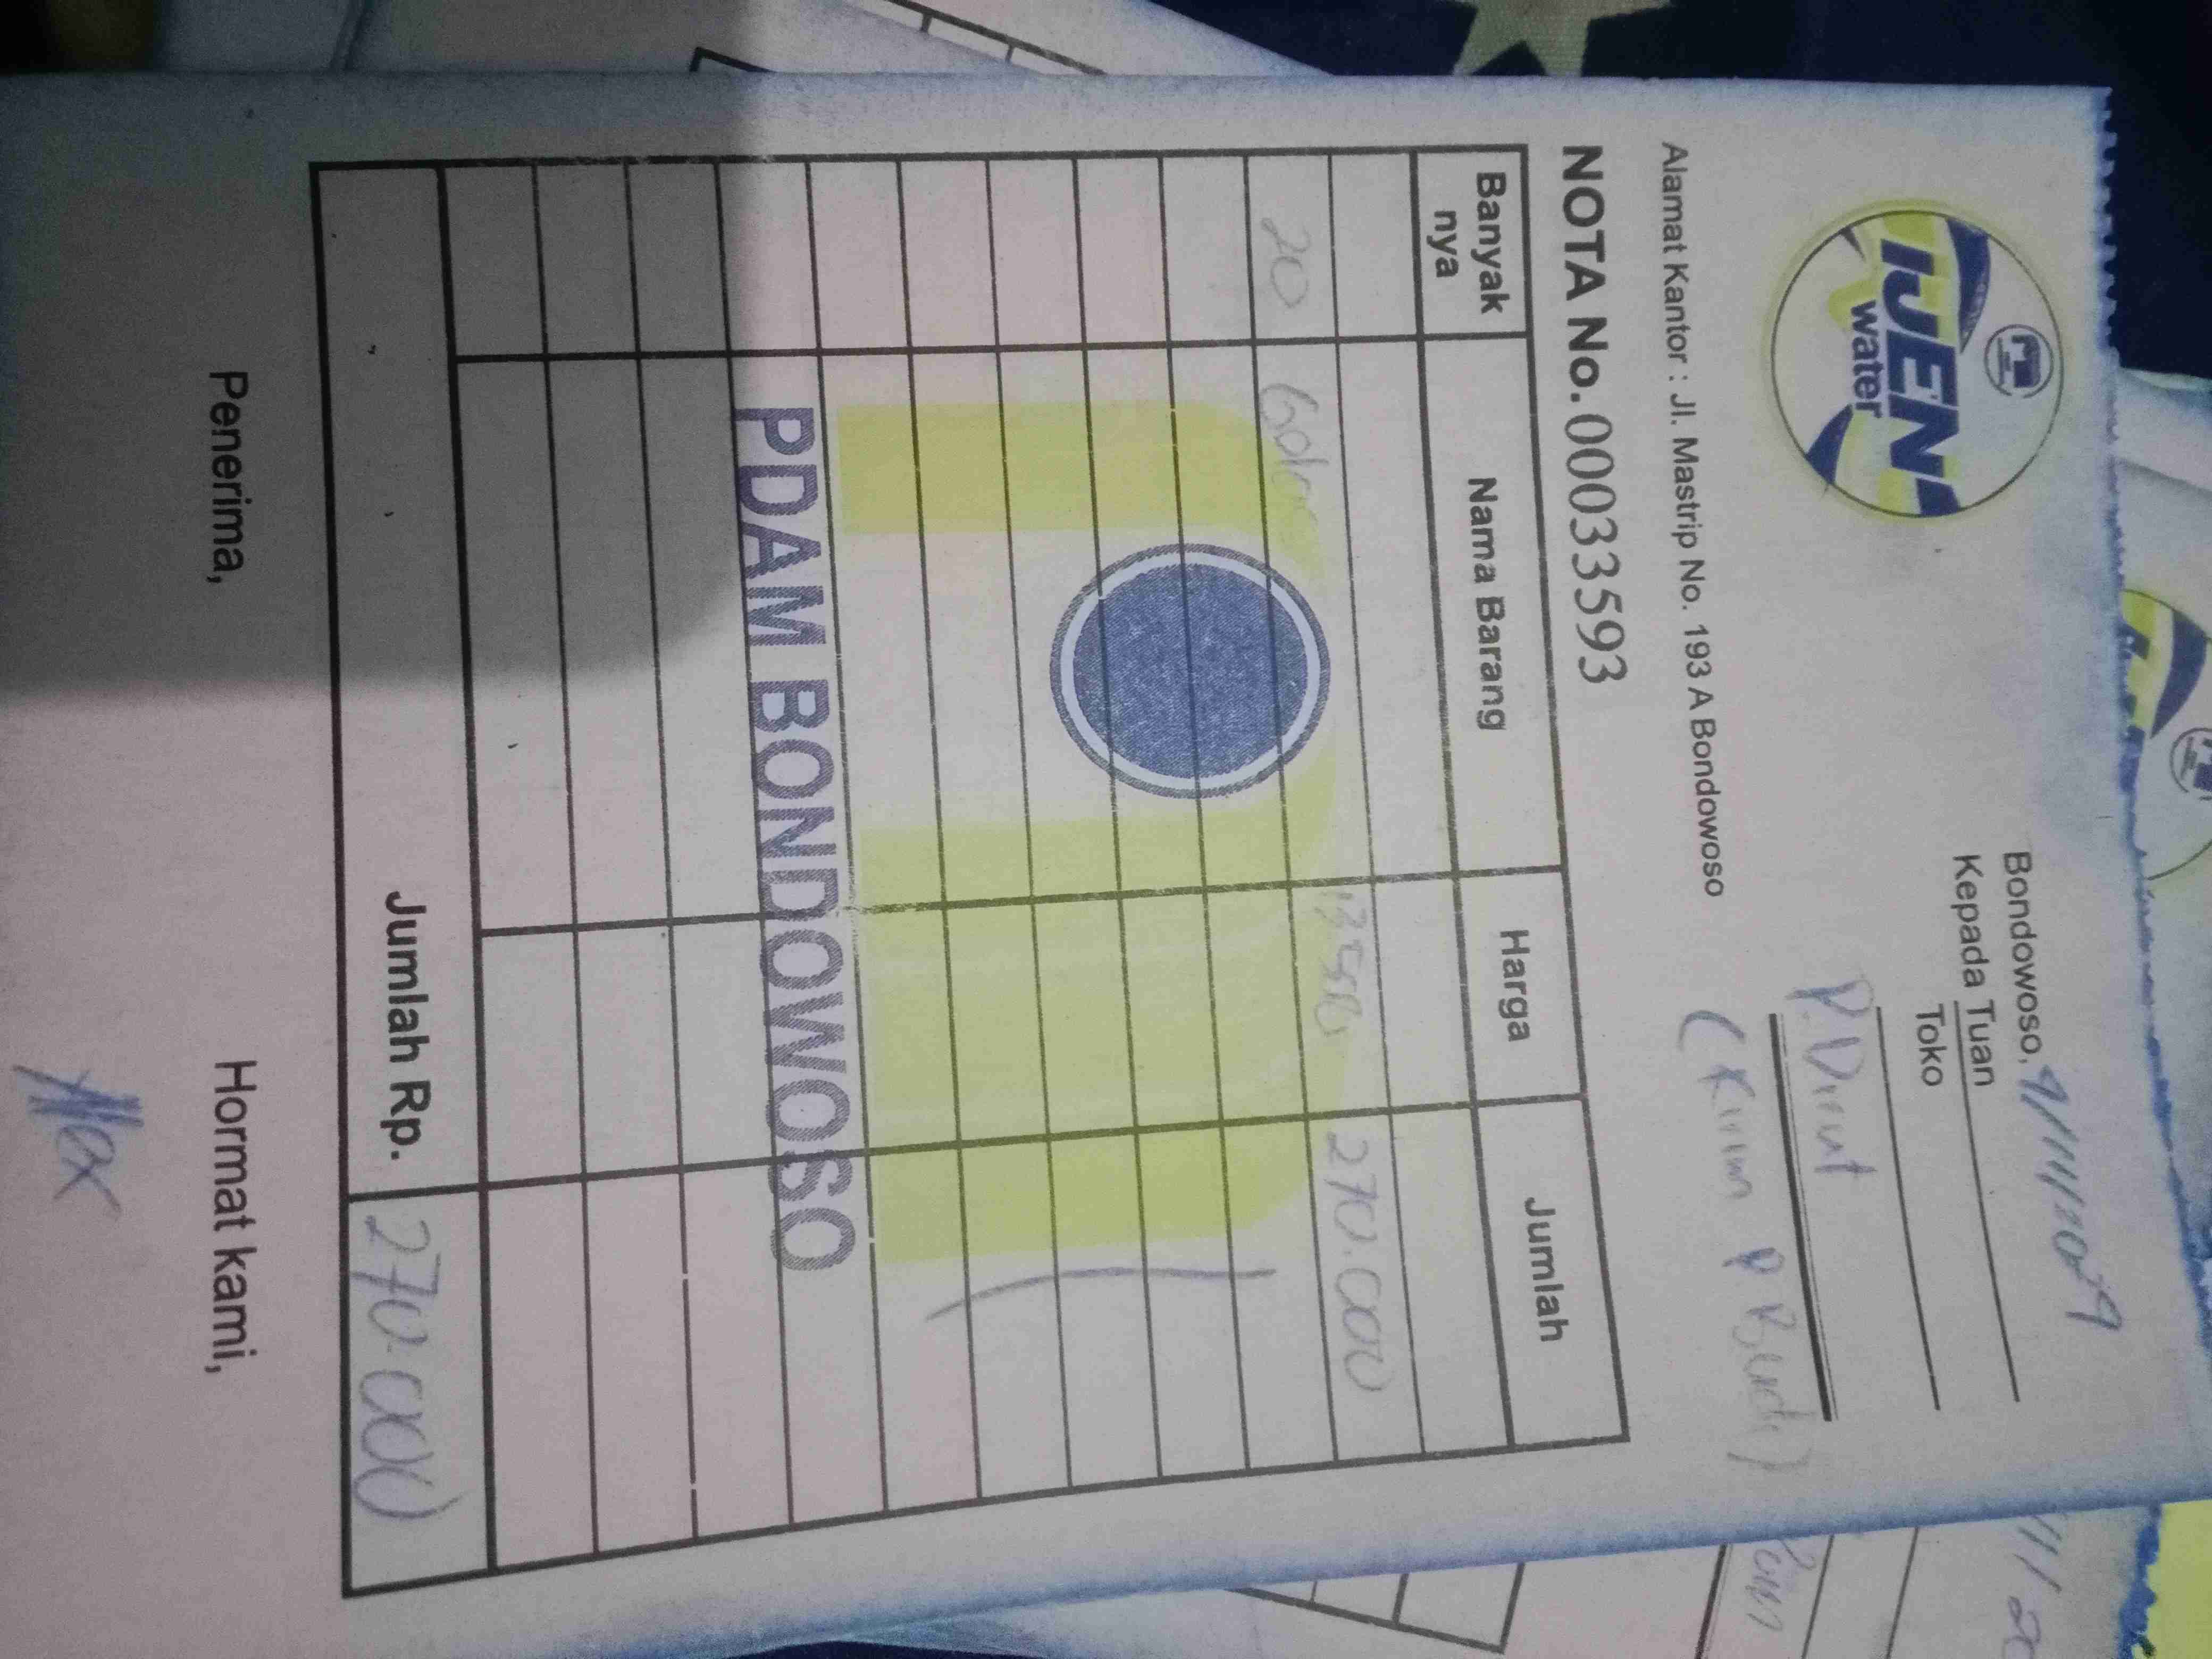 IJEN
water
Bondowoso, 9/11/2024
Kepada Tuan
Toko
P. Dirut
(Kirim P Budi)
Alamat Kantor : Jl. Mastrip No. 193 A Bondowoso
NOTA No. 000033593
Banyak nya Nama Barang Harga Jumlah
20 270.000
PDAM BONDOWOSO
Jumlah Rp. 270.000
Penerima, Hormat kami,